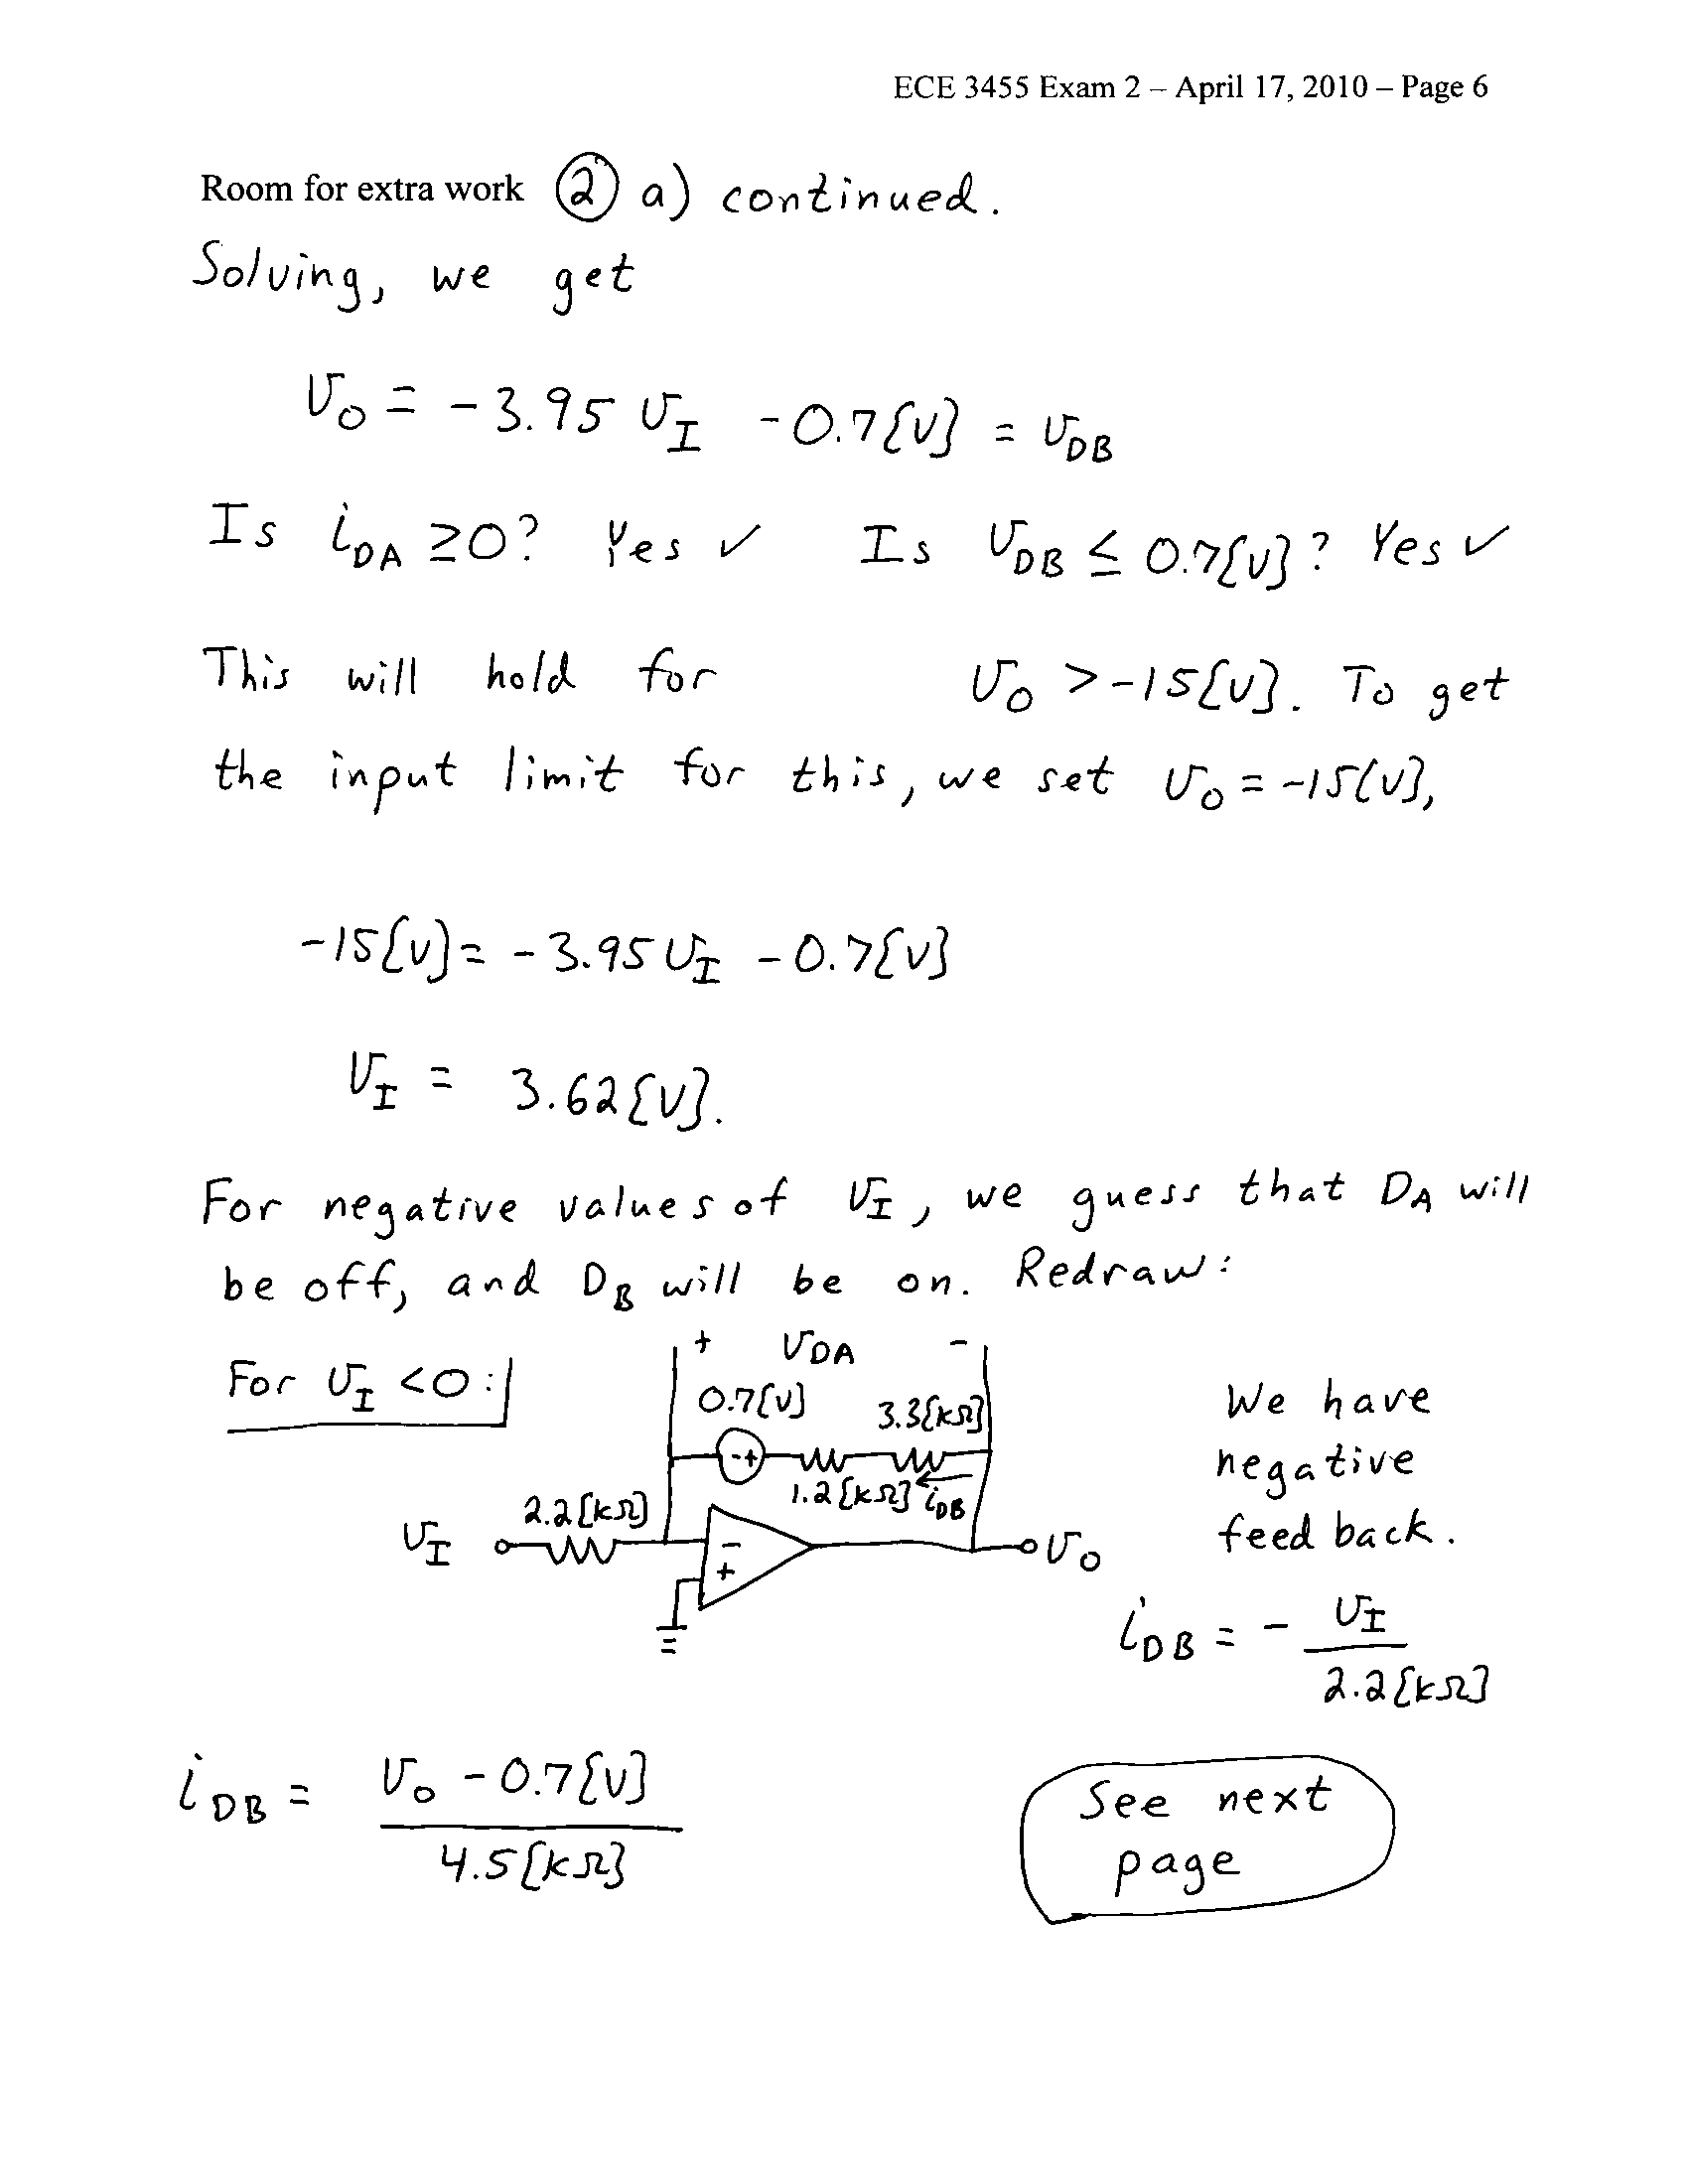 ECE 3455 Exam 2 – April 17, 2010 – Page 6
Room for extra work ② a) continued.
Solving, we get
v_O = -3.95 v_I - 0.7{V} = v_DB
Is i_DA ≥ 0? Yes ✓ Is v_DB ≤ 0.7[V]? Yes ✓
This will hold for v_O > -15[V]. To get
the input limit for this, we set v_O = -15[V],
-15[V] = -3.95 v_I - 0.7[V]
v_I = 3.62[V].
For negative values of v_I, we guess that D_A will
be off, and D_B will be on. Redraw:
For v_I < 0:
+ v_DA -
0.7[V] 3.3[kΩ]
- +
1.2[kΩ] i_DB
2.2[kΩ]
v_I - + v_O
We have
negative
feed back.
i_DB = - v_I / 2.2[kΩ]
i_DB = v_O - 0.7[V] / 4.5[kΩ]
See next
page